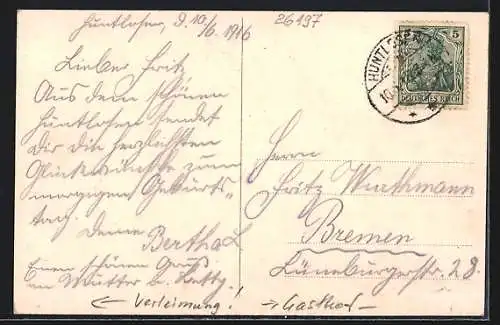 Huntlosen, d. 10./6. 1916
26197
Lieber Fritz
Aus dem schönen
Huntlosen sendet
Dir die herzlichsten
Glückwünsche zum
morgigen Geburts-
tag.
Deine Bertha L.
Einen schönen Gruß
an Mutter u.
← Verleimung!
→ Gasthof −
HUNTLOSEN
10
5
DEUTSCHES REICH
Herrn
Fritz Wurthmann
Bremen
Lüneburgerstr. 28.